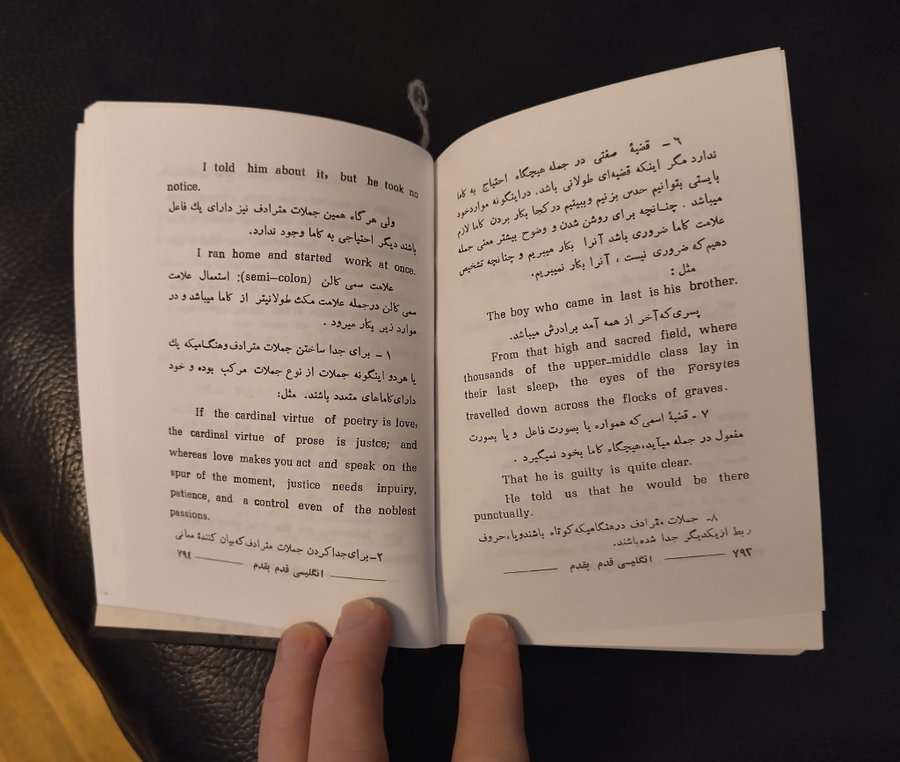 ۶ - قضیهٔ صفتی در جمله هیچگاه احتیاج به کاما
ندارد مگر اینکه قضیه‌ای طولانی باشد. دراینگونه مواردخود
بایستی بتوانیم حدس بزنیم وببینیم درکجا بکار بردن کاما لازم
میباشد . چنـانچه برای روشن شدن و وضوح بیشتر معنی جمله
علامت کاما ضروری باشد آنرا بکار میبریم و چنانچه تشخیص
دهیم‌که ضروری نیست ، آنرا بکار نمیبریم.
مثل :
The boy who came in last is his brother.
پسری‌که‌آخر از همه آمد برادرش میباشد.
From that high and sacred field, where
thousands of the upper-middle class lay in
their last sleep, the eyes of the Forsytes
travelled down across the flocks of graves.
۷ - قضیهٔ اسمی‌که همواره یا بصورت فاعل و یا بصورت
مفعول در جمله میآید،هیچگاه کاما بخود نمیگیرد .
That he is guilty is quite clear.
He told us that he would be there
punctually.
۸- جملات مترادف درهنگامیکه‌کوتاه باشندویا،حروف
ربط ازیکدیگر جدا شده‌باشند.
۷۹۳ انگلیسی قدم بقدم
I told him about it, but he took no
notice.
ولی هرگاه همین جملات مترادف نیز دارای یك فاعل
باشند دیگر احتیاجی به کاما وجود ندارد.
I ran home and started work at once.
علامت سمی کالن (semi-colon): استعمال علامت
سمی کالن درجمله علامت مکث طولانیتر از کاما میباشد و در
موارد زیر بکار میرود .
۱ - برای جدا ساختن جملات مترادف‌وهنگـامیکه یك
یا هردو اینگونه جملات از نوع جملات مرکب بوده و خود
دارای‌کاماهای متعدد باشند. مثل:
If the cardinal virtue of poetry is love,
the cardinal virtue of prose is justce; and
whereas love makes you act and speak on the
spur of the moment, justice needs inpuiry,
patience, and a control even of the noblest
passions.
۲-برای‌جداکردن جملات مترادف‌که‌بیان کنندهٔ معانی
۷۹۴ انگلیسی قدم بقدم